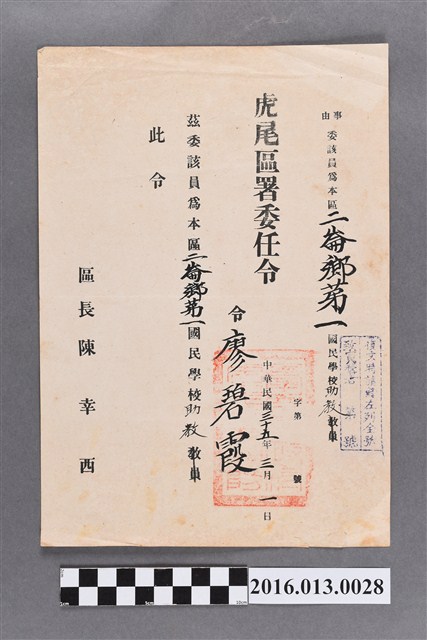 事由 委該員為本區二崙鄉第一國民學校助教教員
虎尾區署委任令
字第 號
中華民國三十五年三月一日
令 廖碧霞
茲委該員為本區二崙鄉第一國民學校助教教員
此令
區長陳幸西
2016.013.0028